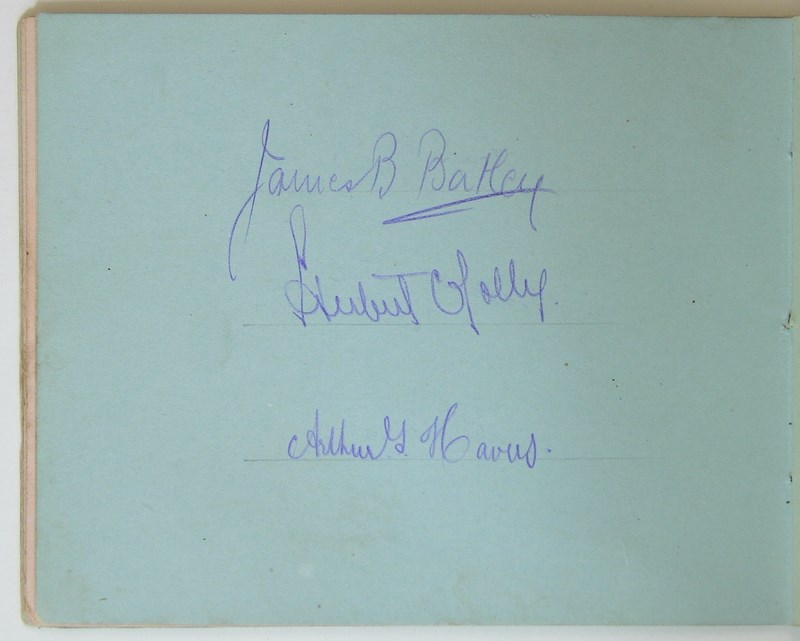 James B Batley
Herbert Jolly.
Arthur G Havers.